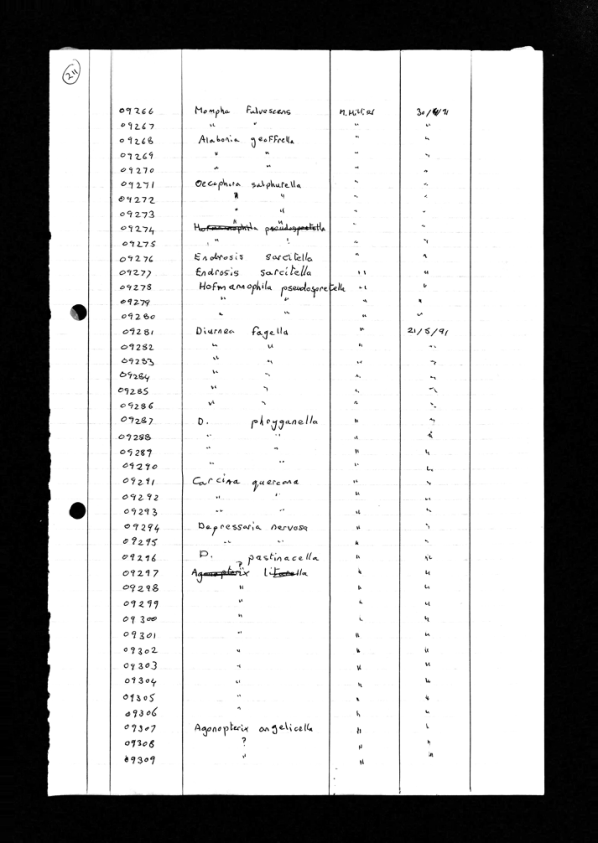 211
09266 Mompha Fulvescens 30/4/91
09267 " " " "
09268 Alabonia geoffrella " "
09269 " " " "
09270 " " " "
09271 Oecophora sulphurella " "
09272 " " " "
09273 " " " "
09274 Hofmannophila pseudospretella " "
09275 " " " "
09276 Endrosis sarcitella " "
09277 Endrosis sarcitella " "
09278 Hofmannophila pseudospretella " "
09279 " " " "
09280 " " " "
09281 Diurnea fagella " 21/5/91
09282 " " " "
09283 " " " "
09284 " " " "
09285 " " " "
09286 " " " "
09287 D. phryganella " "
09288 " " " "
09289 " " " "
09290 " " " "
09291 Carcina quercana " "
09292 " " " "
09293 " " " "
09294 Depressaria nervosa " "
09295 " " " "
09296 D. pastinacella " "
09297 Agonopterix ? " "
09298 " " "
09299 " " "
09300 " " "
09301 " " "
09302 " " "
09303 " " "
09304 " " "
09305 " " "
09306 " " "
09307 Agonopterix angelicella " "
09308 ? " "
09309 " " "